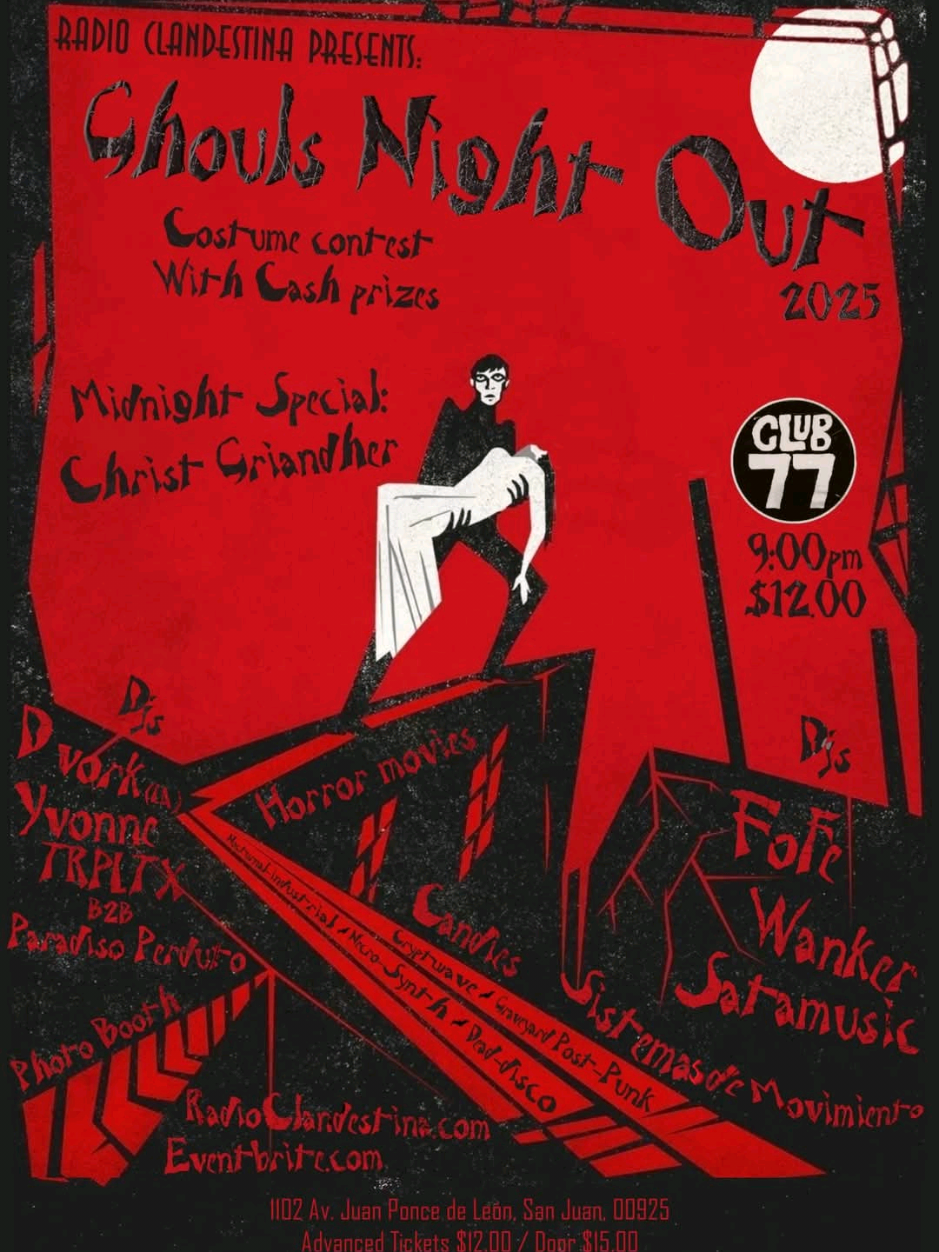 RADIO CLANDESTINA PRESENTS:
Ghouls Night Out
2025
Costume contest
With Cash prizes
Midnight Special:
Christ Griandher
CLUB
77
9:00pm
$12.00
Djs
D vork(ix)
Yvonne
TRPLTX
B2B
Paradiso Perduto
Photo Booth
Horror movies
Candies
Nocturnal-industrial / Cryptwave / Graveyard Post-Punk
Necro-Synth / Dead-disco
Djs
FoFe
Wanker
Satamusic
Sistemas de Movimiento
RadioClandestina.com
Eventbrite.com
1102 Av. Juan Ponce de León, San Juan, 00925
Advanced Tickets $12.00 / Door $15.00